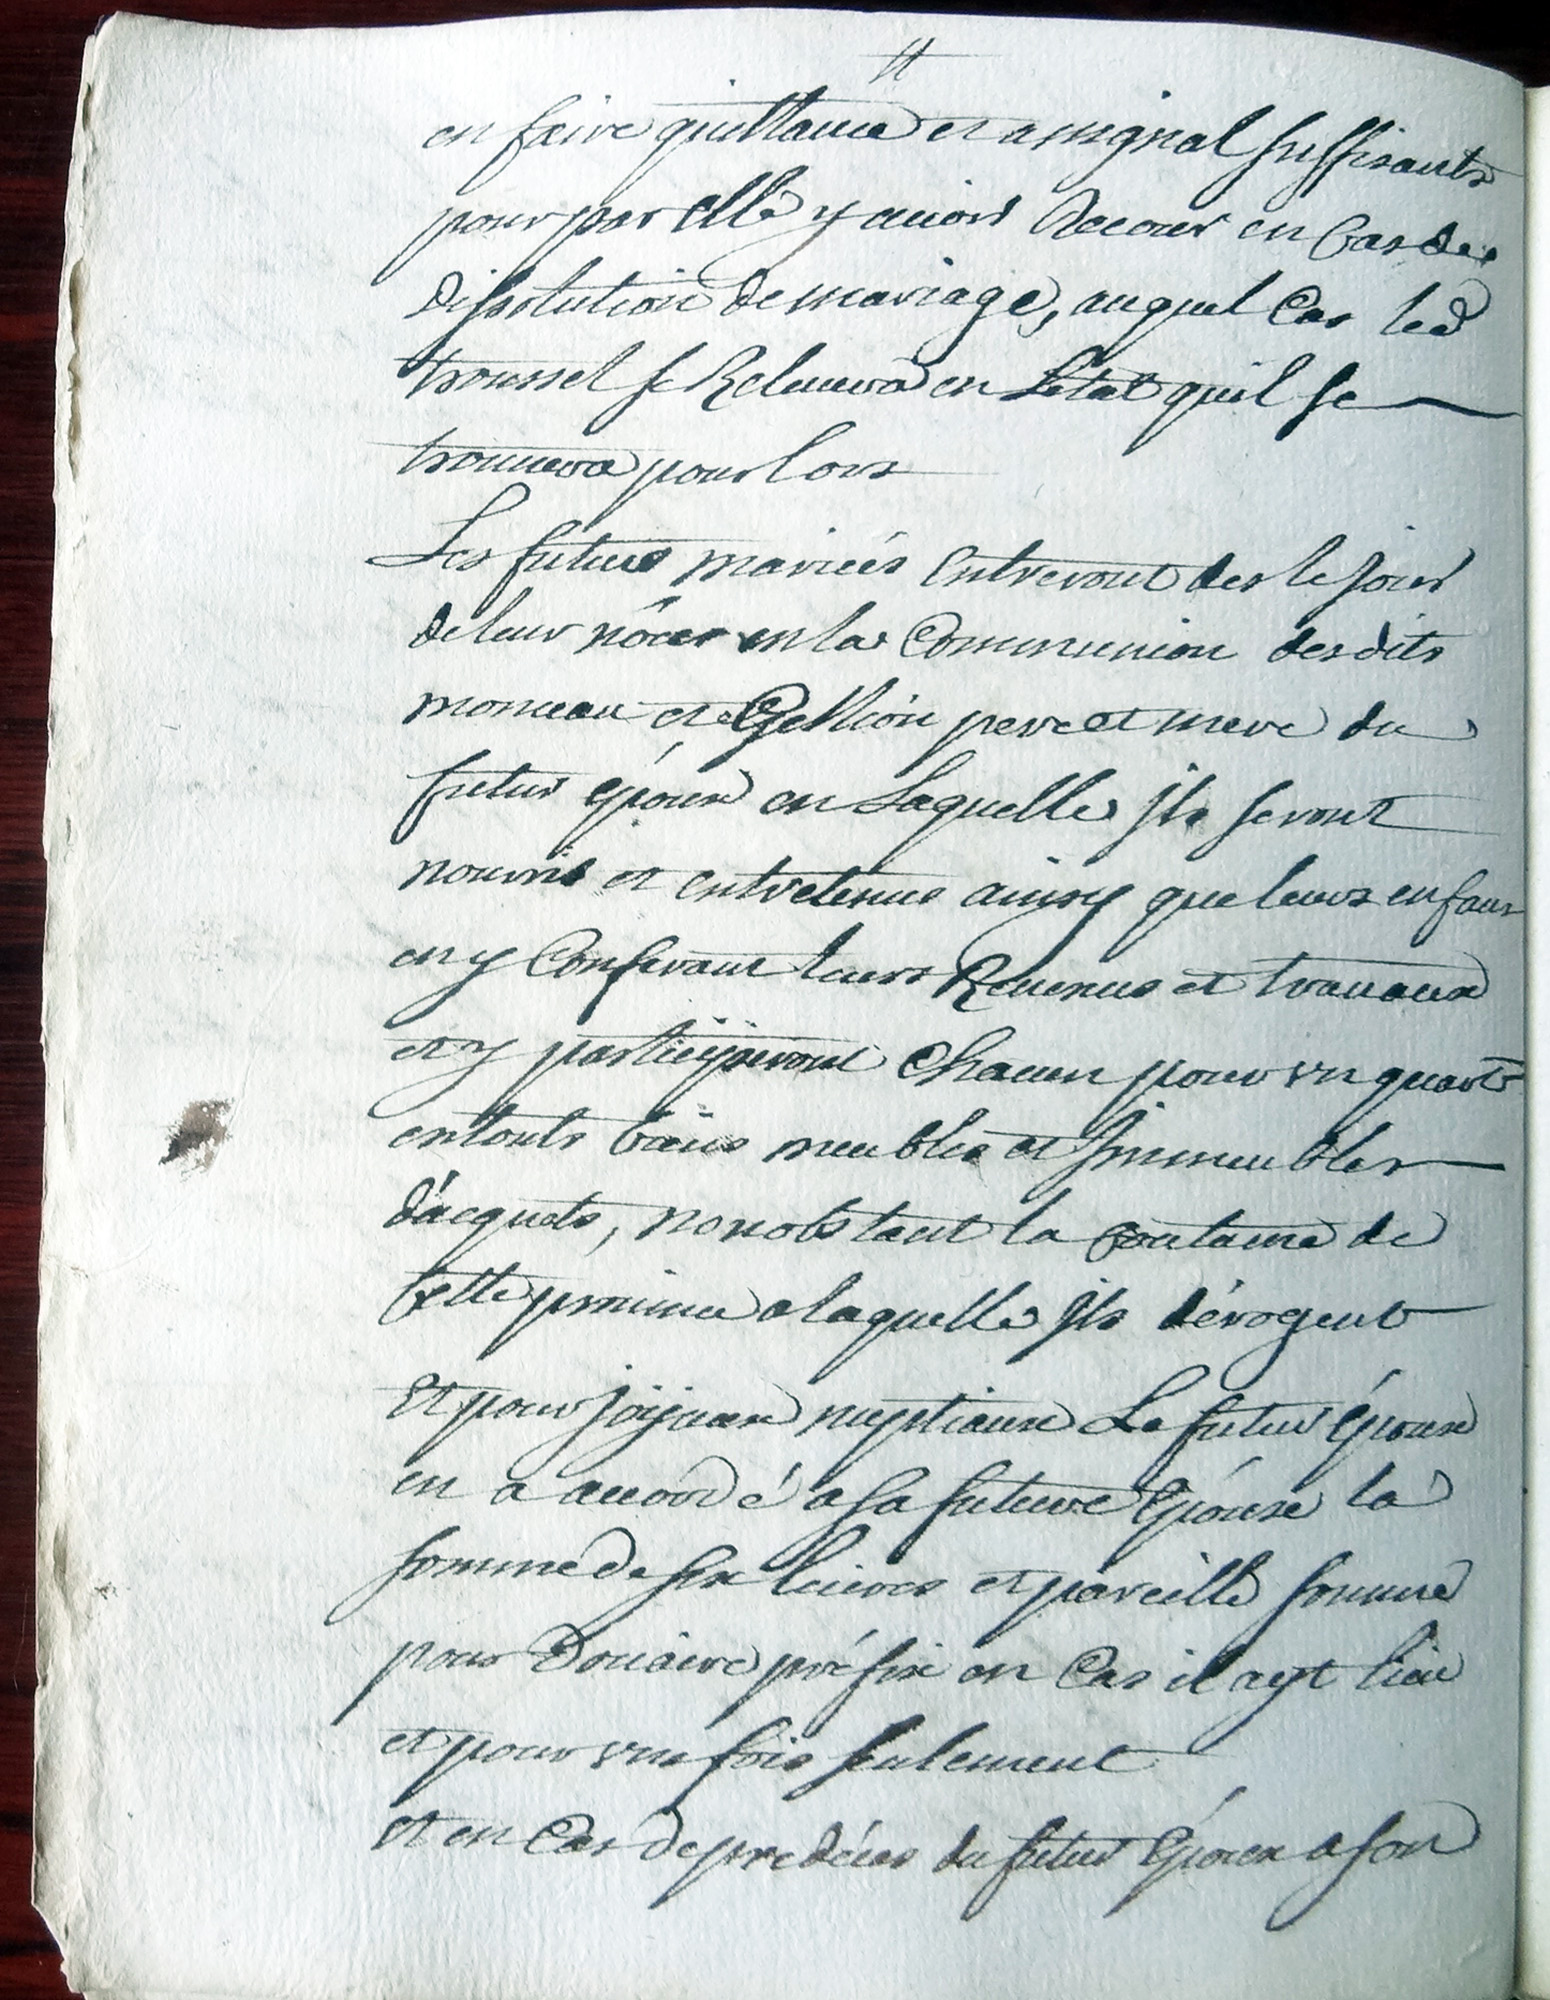 en faire quittance et assignal suffisants
pour par elle y avoir Recour en Cas de
dissolution de mariage, auquel Cas led
troussel se Relevera en Letat quil se
trouvera pour lors
Les futurs mariés Entreront des le jour
de leur nôces en la Communion desdits
monceau et pere et mere du
futur époux en Laquelle jls seront
nourris et entretenus ainsy que leurs enfans
en y Conferant leurs Revenus et travaux
et y participeront Chacun pour un quart
en touts biens meubles et jmmeubles
d'acquets, nonobstant la Coutume de
Cette province a laquelle jls dérogent
Et pour joijaux nuptiaux Le futur Époux
en a accordé a sa future Épouse la
somme de six livres et pareille somme
pour Douaire préfix en Cas il ayt lieu
et pour une fois seulement
et en Cas de predéces du futur Époux a son